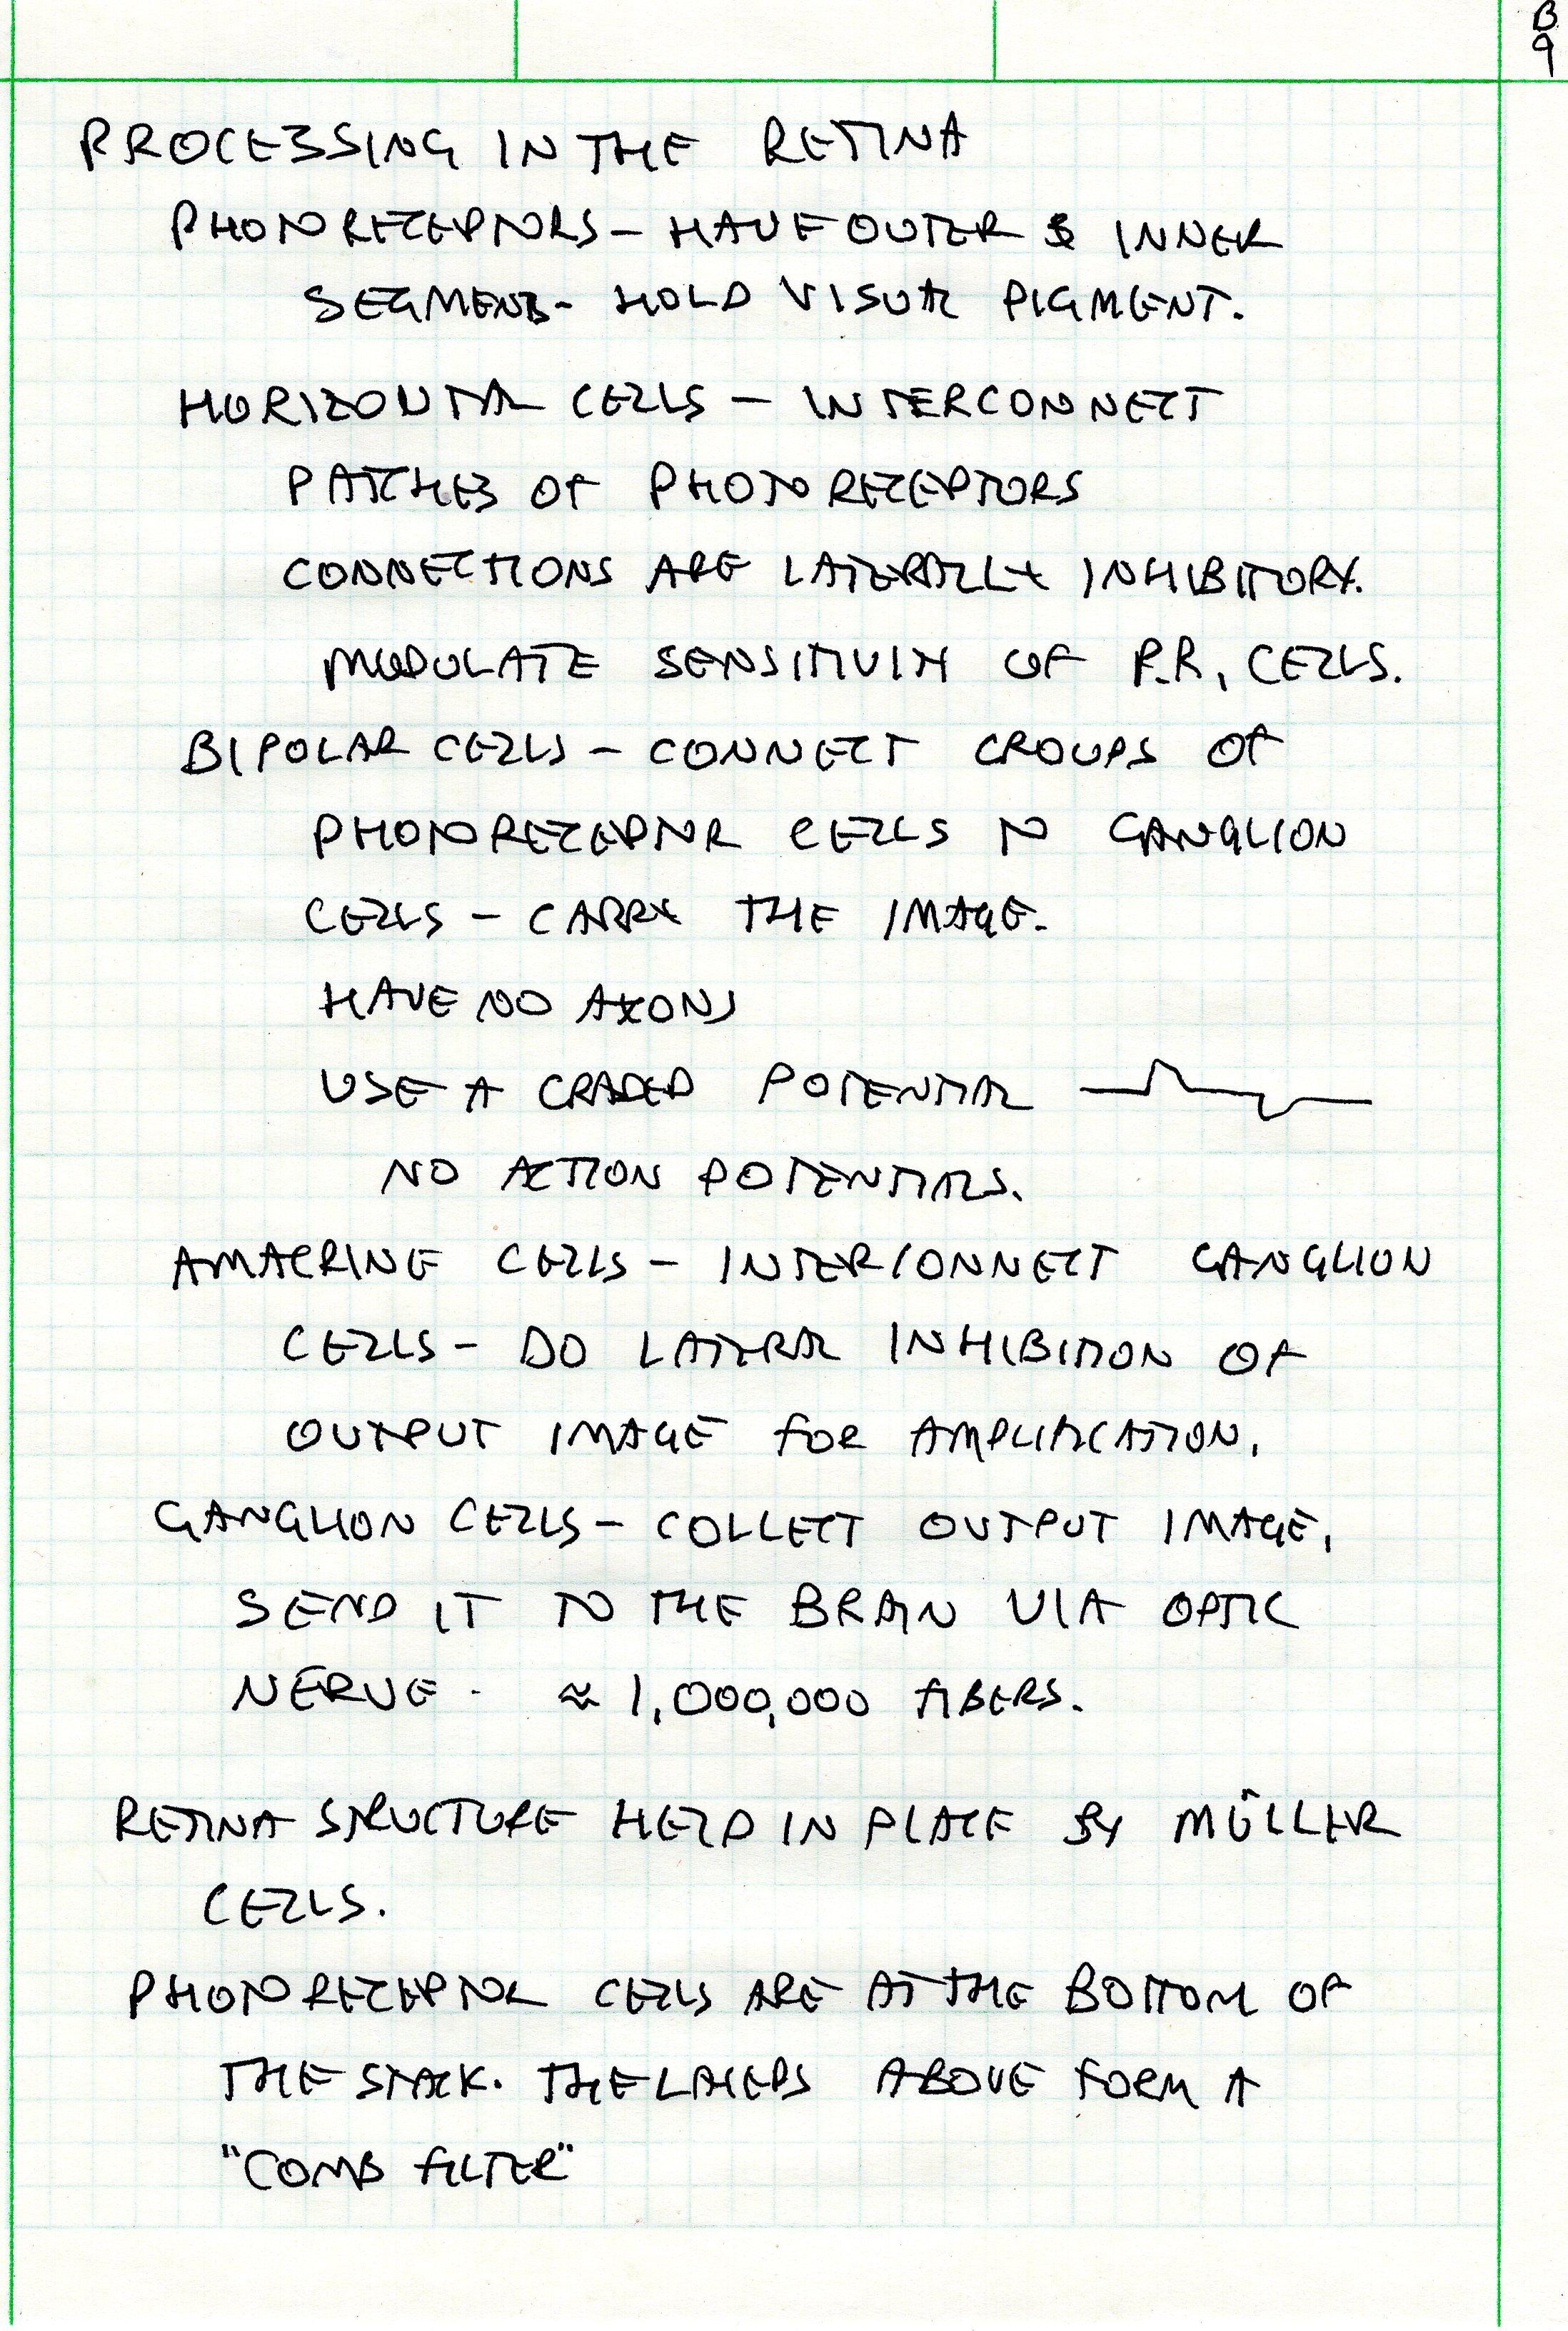 B
9
PROCESSING IN THE RETINA
PHOTORECEPTORS – HAVE OUTER & INNER
SEGMENTS - HOLD VISUAL PIGMENT.
HORIZONTAL CELLS – INTERCONNECT
PATCHES OF PHOTORECEPTORS
CONNECTIONS ARE LATERALLY INHIBITORY.
MODULATE SENSITIVITY OF P.R. CELLS.
BIPOLAR CELLS – CONNECT GROUPS OF
PHOTORECEPTOR CELLS TO GANGLION
CELLS – CARRY THE IMAGE.
HAVE NO AXONS
USE A GRADED POTENTIAL
NO ACTION POTENTIALS.
AMACRINE CELLS – INTERCONNECT GANGLION
CELLS – DO LATERAL INHIBITION OF
OUTPUT IMAGE FOR AMPLIFICATION.
GANGLION CELLS – COLLECT OUTPUT IMAGE,
SEND IT TO THE BRAIN VIA OPTIC
NERVE - ≈ 1,000,000 FIBERS.
RETINA STRUCTURE HELD IN PLACE BY MÜLLER
CELLS.
PHOTORECEPTOR CELLS ARE AT THE BOTTOM OF
THE STACK. THE LAYERS ABOVE FORM A
"COMB FILTER"